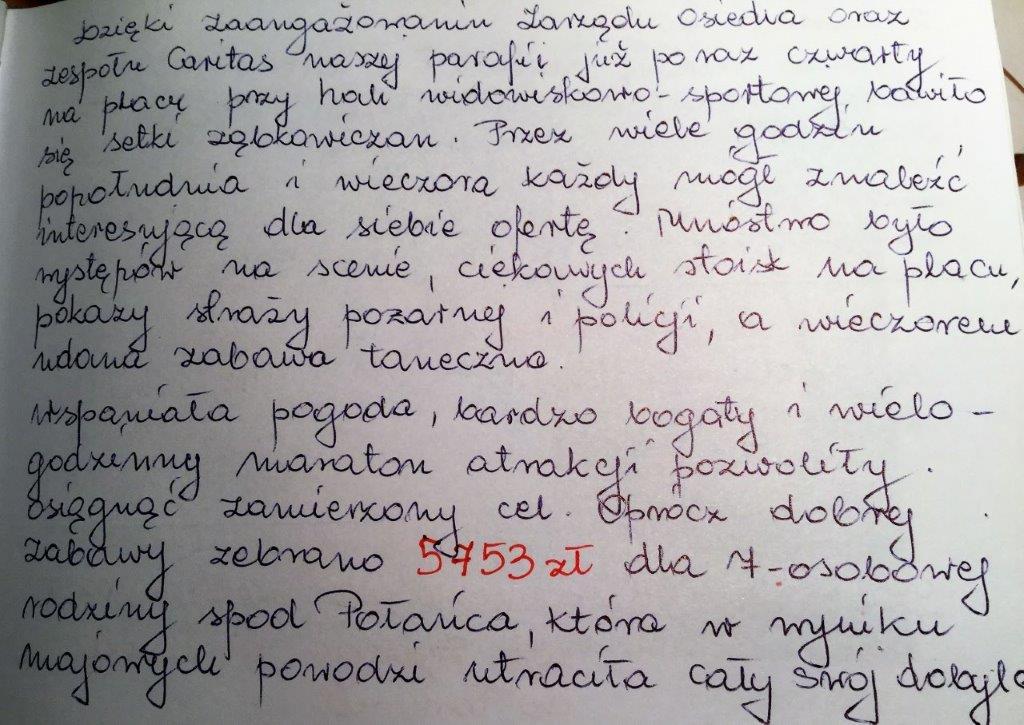 Dzięki zaangażowaniu Zarządu Osiedla oraz
zespołu Caritas naszej parafii już po raz czwarty
na placu przy hali widowiskowo-sportowej bawiło
się setki ząbkowiczan. Przez wiele godzin
popołudnia i wieczora każdy mógł znaleźć
interesującą dla siebie ofertę. Mnóstwo było
występów na scenie, ciekawych stoisk na placu,
pokazy straży pożarnej i policji, a wieczorem
udana zabawa taneczna.
Wspaniała pogoda, bardzo bogaty i wielo-
godzinny maraton atrakcji pozwoliły
osiągnąć zamierzony cel. Oprócz dobrej
zabawy zebrano 5753 zł dla 7-osobowej
rodziny spod Połańca, która w wyniku
majowych powodzi utraciła cały swój dobyte